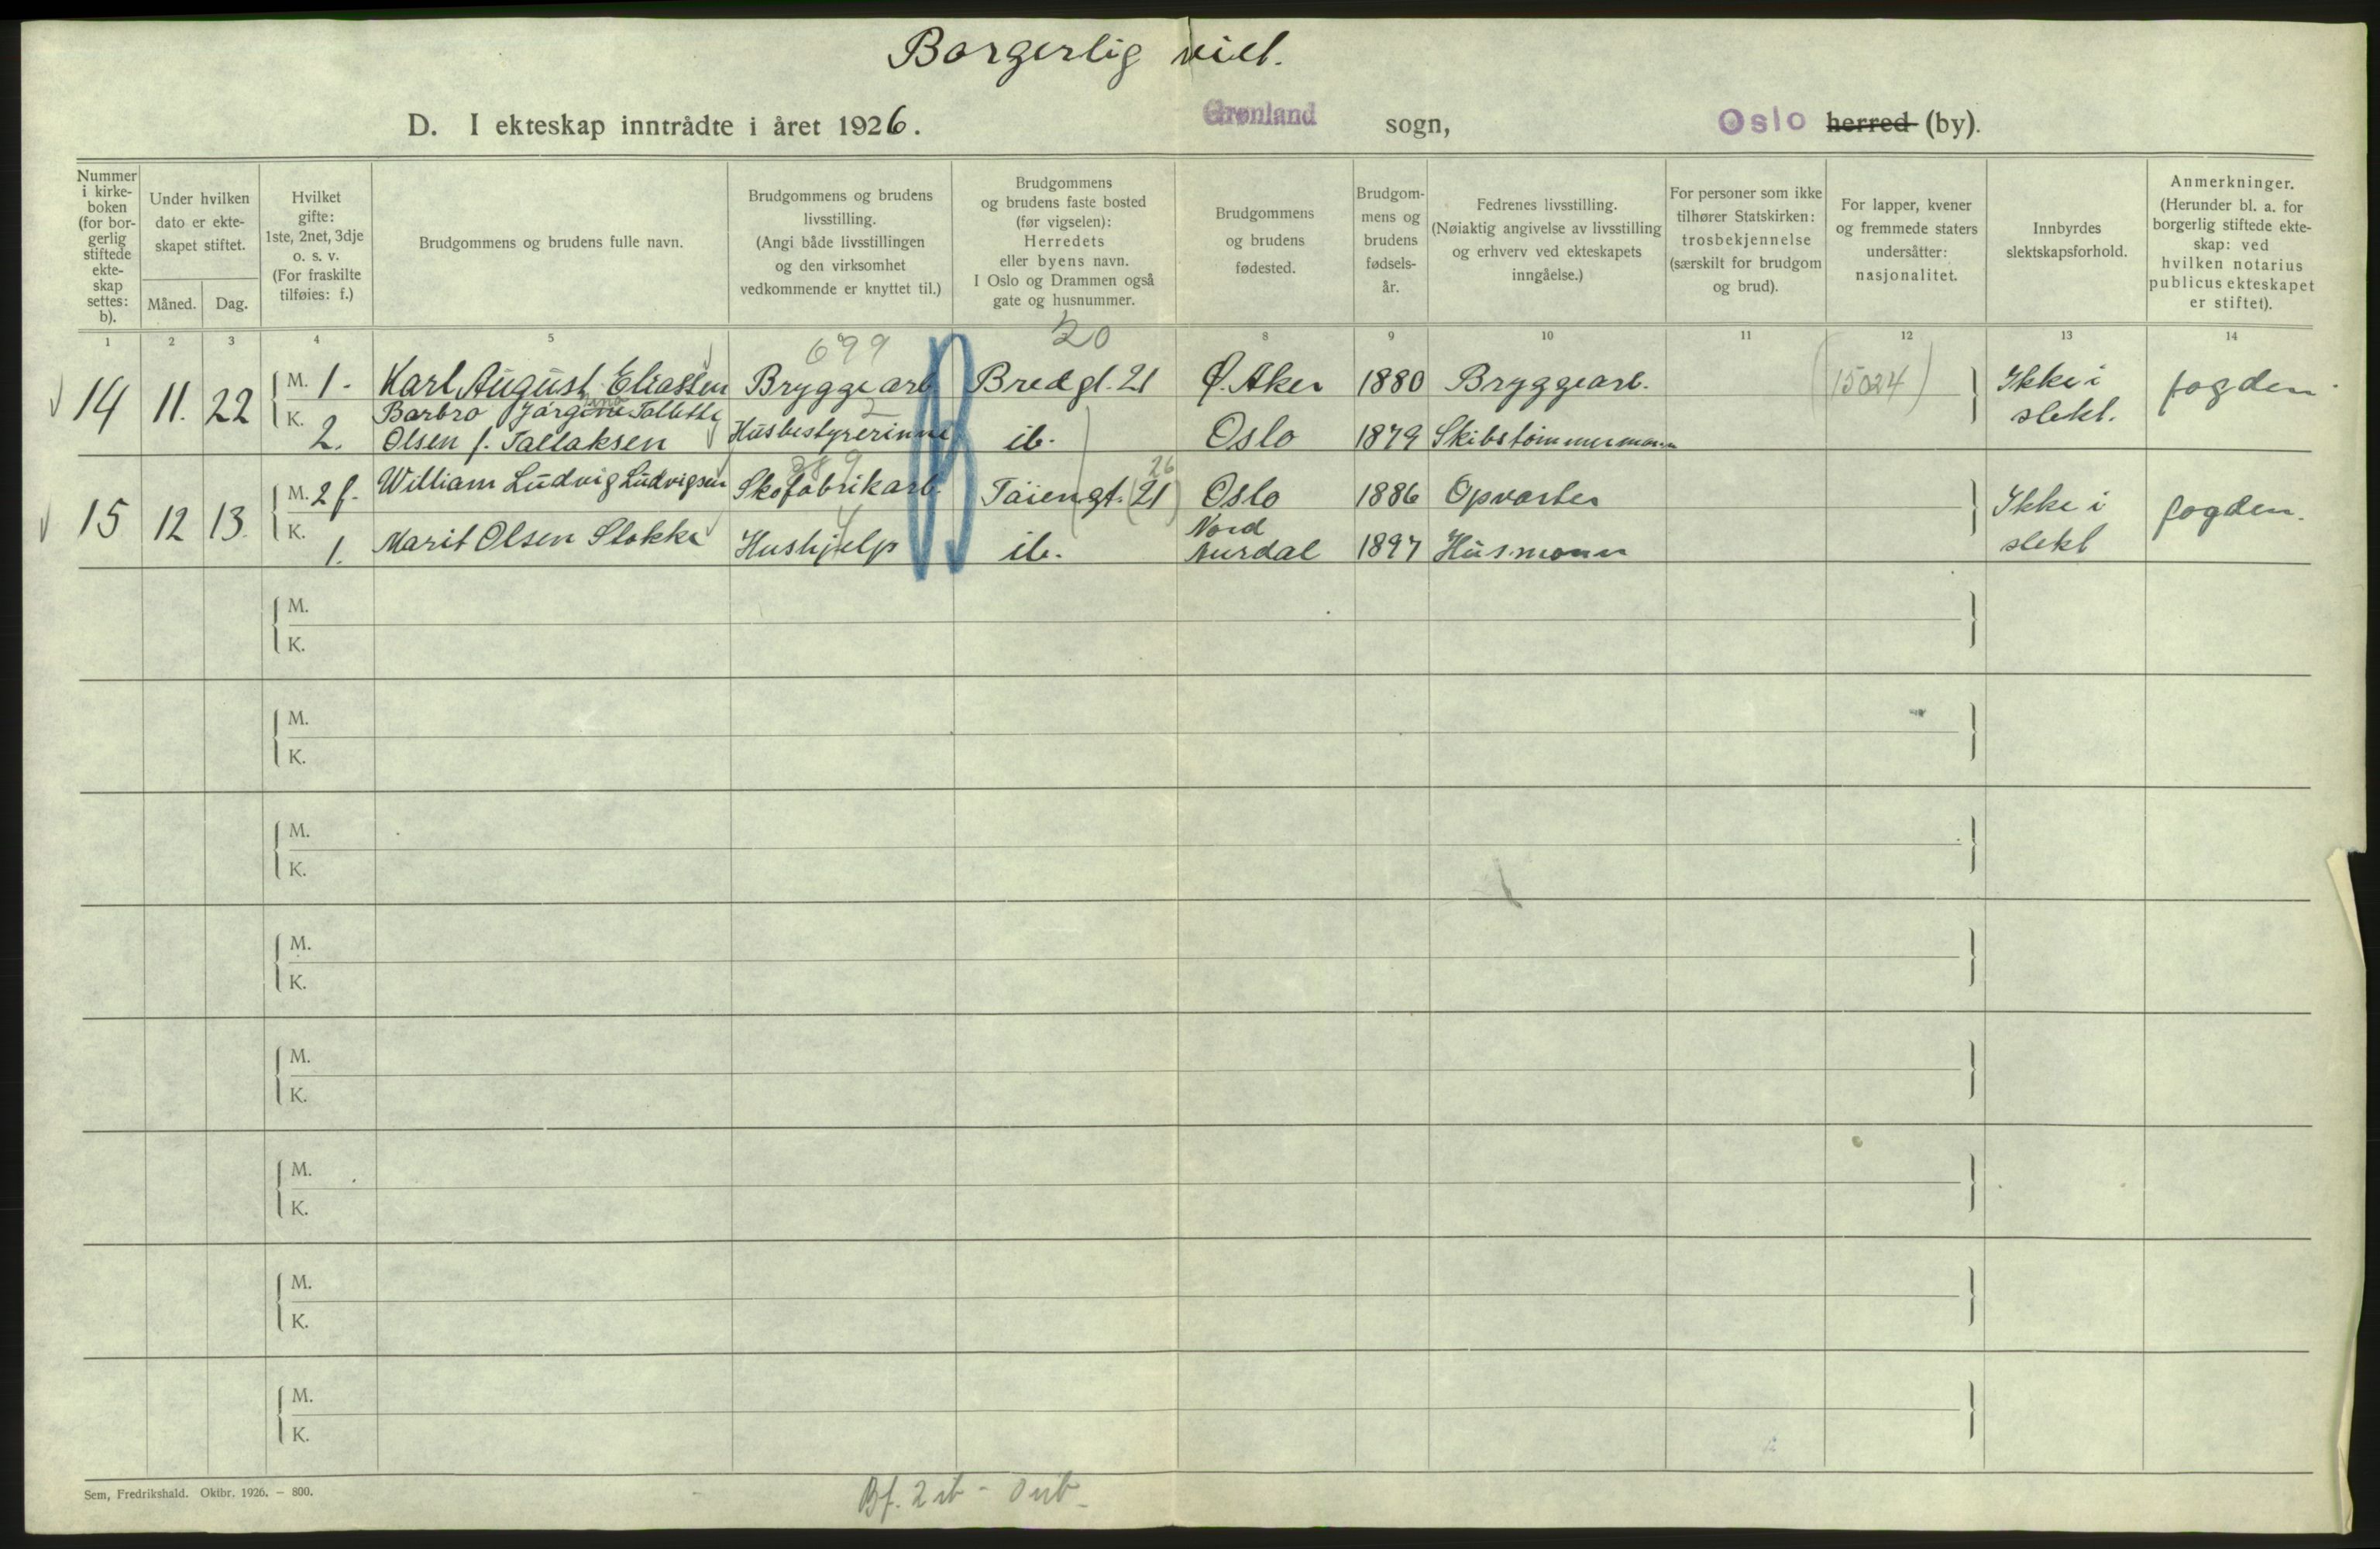 Borgerlig viet.
D. I ekteskap inntrådte i året 1926.
Grønland sogn,
Oslo herred (by).
Nummer i kirkeboken (for borgerlig stiftede ekteskap settes: b).
Under hvilken dato er ekteskapet stiftet.
Måned. Dag.
Hvilket gifte: 1ste, 2net, 3dje o. s. v. (For fraskilte tilføies: f.)
Brudgommens og brudens fulle navn.
Brudgommens og brudens livsstilling. (Angi både livsstillingen og den virksomhet vedkommende er knyttet til.)
Brudgommens og brudens faste bosted (før vigselen): Herredets eller byens navn. I Oslo og Drammen også gate og husnummer.
Brudgommens og brudens fødested.
Brudgommens og brudens fødsels-år.
Fedrenes livsstilling. (Nøiaktig angivelse av livsstilling og erhverv ved ekteskapets inngåelse.)
For personer som ikke tilhører Statskirken: trosbekjennelse (særskilt for brudgom og brud).
For lapper, kvener og fremmede staters undersåtter: nasjonalitet.
Innbyrdes slektskapsforhold.
Anmerkninger. (Herunder bl. a. for borgerlig stiftede ekteskap: ved hvilken notarius publicus ekteskapet er stiftet).
1 2 3 4 5 8 9 10 11 12 13 14
699 20
14 11. 22 M. 1. Karl August Eliassen Bryggearb Bredgt. 21 Ø. Aker 1880 Bryggearb. (15024) Ikke i slekt. fogden
K. 2. Barbro Jørgine Tallette Olsen f. Tallaksen Husbestyrerinne ib. Oslo 1879 Skibstømmermann
15 12 13. M. 2 f. William Ludvig Ludvigsen Skofabrikarb. Tøiengt. (21) 26 Oslo 1886 Opvarter Ikke i slekt fogden.
K. 1. Marit Olsen Slokka Hushjelp ib. Nord Aurdal 1897 Husmann
M.
K.
M.
K.
M.
K.
M.
K.
M.
K.
M.
K.
M.
K.
M.
K.
Sem, Fredrikshald. Oktbr. 1926. – 800.